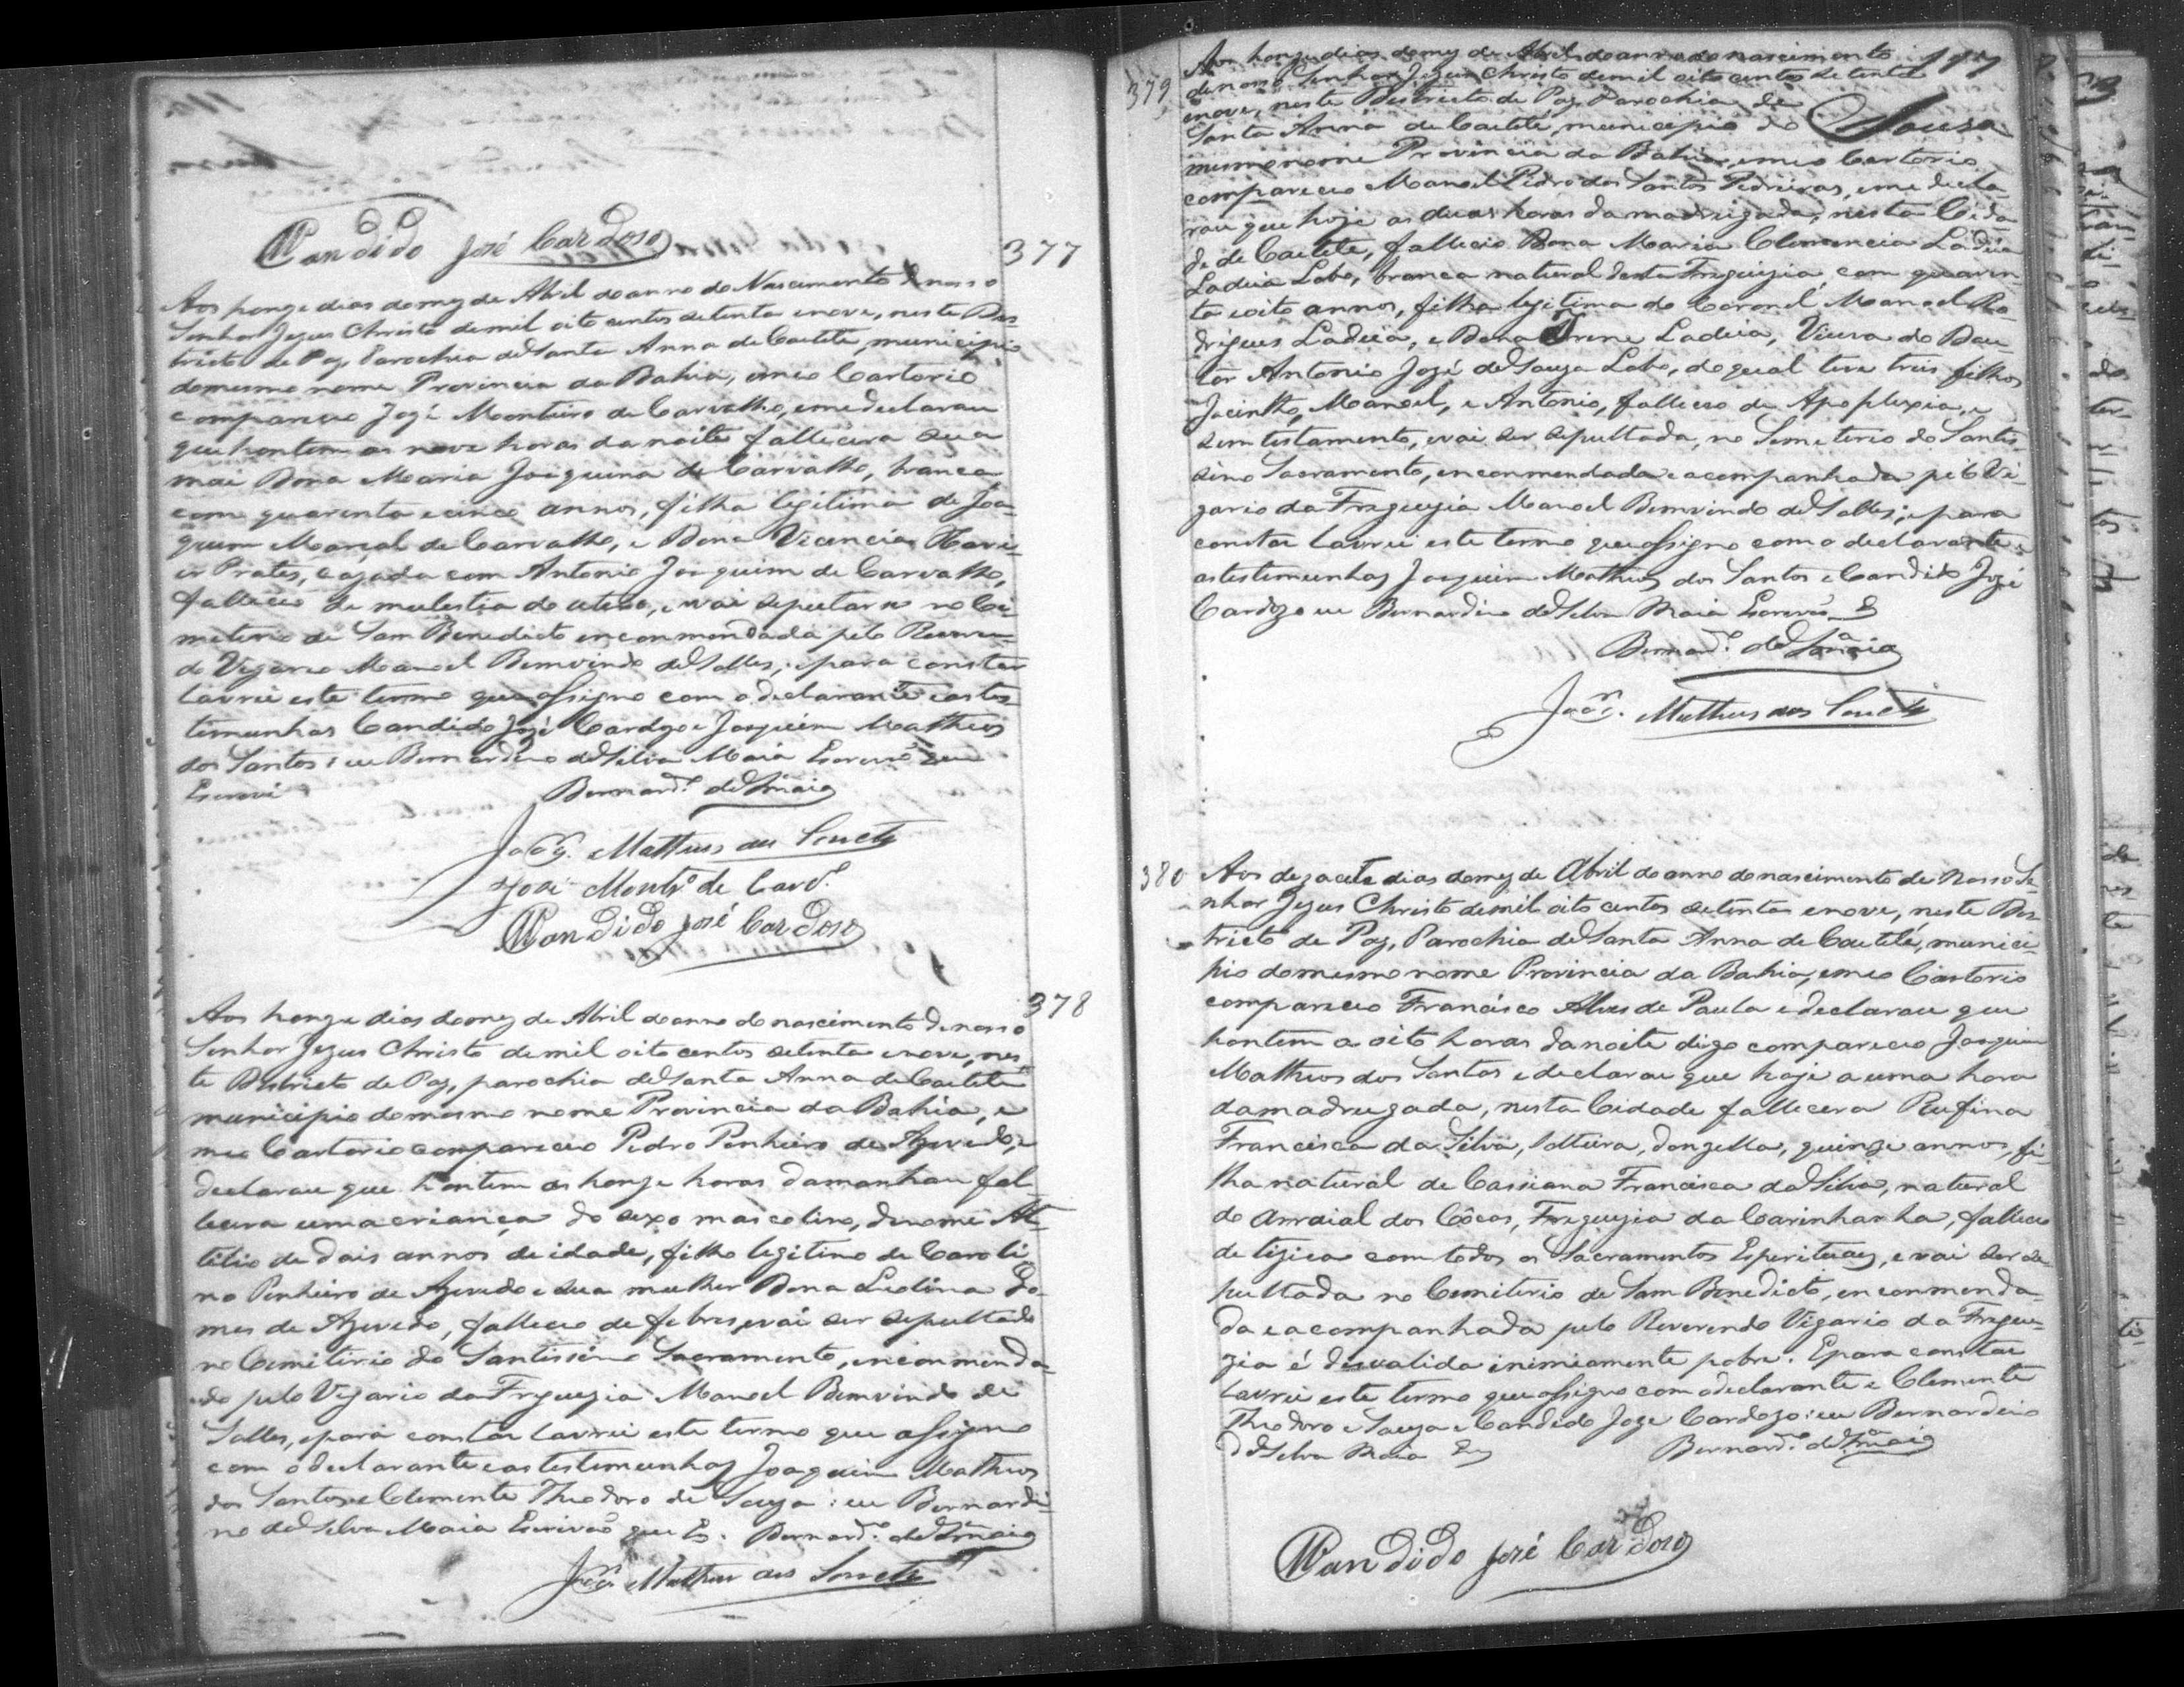 Candido José Cardoso
377
Aos honze dias do mez de Abril do anno do Nascimento de nosso
Senhor Jezus Christo de mil oito centos setenta e nove, neste Dis-
tricto de Paz, Parochia de Santa Anna de Caetité, municipio
do mesmo nome Provincia da Bahia, em meo Cartorio
compareceo Jozé Monteiro de Carvalho, e me declarou
que hontem as nove horas da noite fallecera sua
mai Dona Maria Joaquina de Carvalho, branca,
com quarenta e cinco annos, filha legitima de Joa-
quim Marçal de Carvalho, e Dona Vicencia Xavi-
er Prates, cazada com Antonio Joaquim de Carvalho,
falleceo de mulestia do utero, e vai sepultar se no Ce-
miterio de Sam Benedicto enconmendada pelo Reveren-
do Vigario Manoel Bemvindo de Salles, e para constar
lavrei este termo que assigno com o declarante e as tes-
timunhas Candido José Cardozo e Joaquim Matheos
dos Santos: eu Bernardino da Silva Maia Escrivão que
Escrevi
Bernard.º da S.ª Maia
Joaq.m Matheus dos Santos
José Montr.º de Carv.º
Candido José Cardoso
378
Aos honze dias do mez de Abril do anno do nascimento de nosso
Senhor Jezus Christo de mil oito centos setenta e nove, nes-
te Districto de Paz, parochia de Santa Anna de Caetité
municipio do mesmo nome Provincia da Bahia, e
meo Cartorio compareceo Pedro Penheiro de Azevedo, e
declarou que hontem as honze horas da manhau fal-
lecera uma criança do sexo mascolino, de nome At-
tilio de dois annos de idade, filho legitimo de Caroli-
no Penheiro de Azevedo e sua mulher Dona Leolina Go-
mes de Azevedo, falleceo de febres, e vai ser sepultado
no Cemiterio do Santissimo Sacramento, enconmenda-
do pelo Vigario da Freguezia Manoel Bemvindo de
Salles, e para constar lavrei este termo que assigno
com o declarante e as testemunhas Joaquim Matheos
dos Santos e Clemente Theodoro de Souza: eu Bernardi-
no da Silva Maia Escrivão que E. Bernard.º da S.ª Maia
Joaq.m Matheus dos Santos
379
Aos honze dias do mez de Abril do anno do nascimento
de nosso Senhor Jezus Christo de mil oito centos setenta
e nove, neste Districto de Paz, Parochia de
Santa Anna de Caetité, municipio do Souza
mesmo nome Provincia da Bahia, em meo Cartorio
compareceo Manoel Pedro dos Santos Pedreiras, e me decla-
rou que hoje as duas horas da madrugada, nesta Cida-
de de Caetité, falleceo Dona Maria Clemencia Ladeia
Ladeia Lobo, branca natural desta Freguizia, com quaren-
ta e oito annos, filha legitima do Coronel Manoel Ro-
drigues Ladeia, e Dona Irene Ladeia, Viuva do Dou-
tor Antonio Jozé de Souza Lobo, do qual teve treis filhos
Jacintho, Manoel, e Antonio, falleceo de Apoplexia, e
sem testamento, e vai ser sepultada, no Semeterio do Santis-
simo Sacramento, enconmendada e acompanhada pelo Vi-
gario da Freguezia Manoel Bemvindo de Salles; e para
constar lavrei este termo que assigno com o declarante e
as testemunhas Joaquim Matheos dos Santos e Candido Jozé
Cardozo eu Bernardino da Silva Maia Escrivão E
Bernard.º da S.ª Maia
Joaq.m Matheus dos Santos
380
Aos dezacete dias do mez de Abril do anno do nascimento de Nosso Se-
nhor Jezus Christo de mil oito centos setenta e nove, neste Dis-
tricto de Paz, Parochia de Santa Anna de Caetité, munici-
pio do mesmo nome Provincia da Bahia, em meo Cartorio
compareceo Francisco Alves de Paula e declarou que
hontem a oito horas da noite digo compareceo Joaquim
Matheos dos Santos e declarou que hoje a uma hora
da madrugada, nesta Cidade fallecera Rufina
Francisca da Silva, solteira, donzella, quinze annos, fi-
lha natural de Cassiana Francisca da Silva, natural
do Arraial dos Côcos, Freguezia da Carinhanha, falleceo
de tizica com todos os Sacramentos Esperituaes, e vai ser se-
pultada no Cemiterio de Sam Benedicto, enconmenda-
da e acompanhada pelo Reverendo Vigario da Fregue-
zia é desvalida inimiamente pobre. E para constar
lavrei este termo que assigno com o declarante e Clemente
Theodoro e Souza e Candido Joze Cardozo: eu Bernardino
da Silva Maia E
Bernard.º da S.ª Maia
Candido José Cardoso